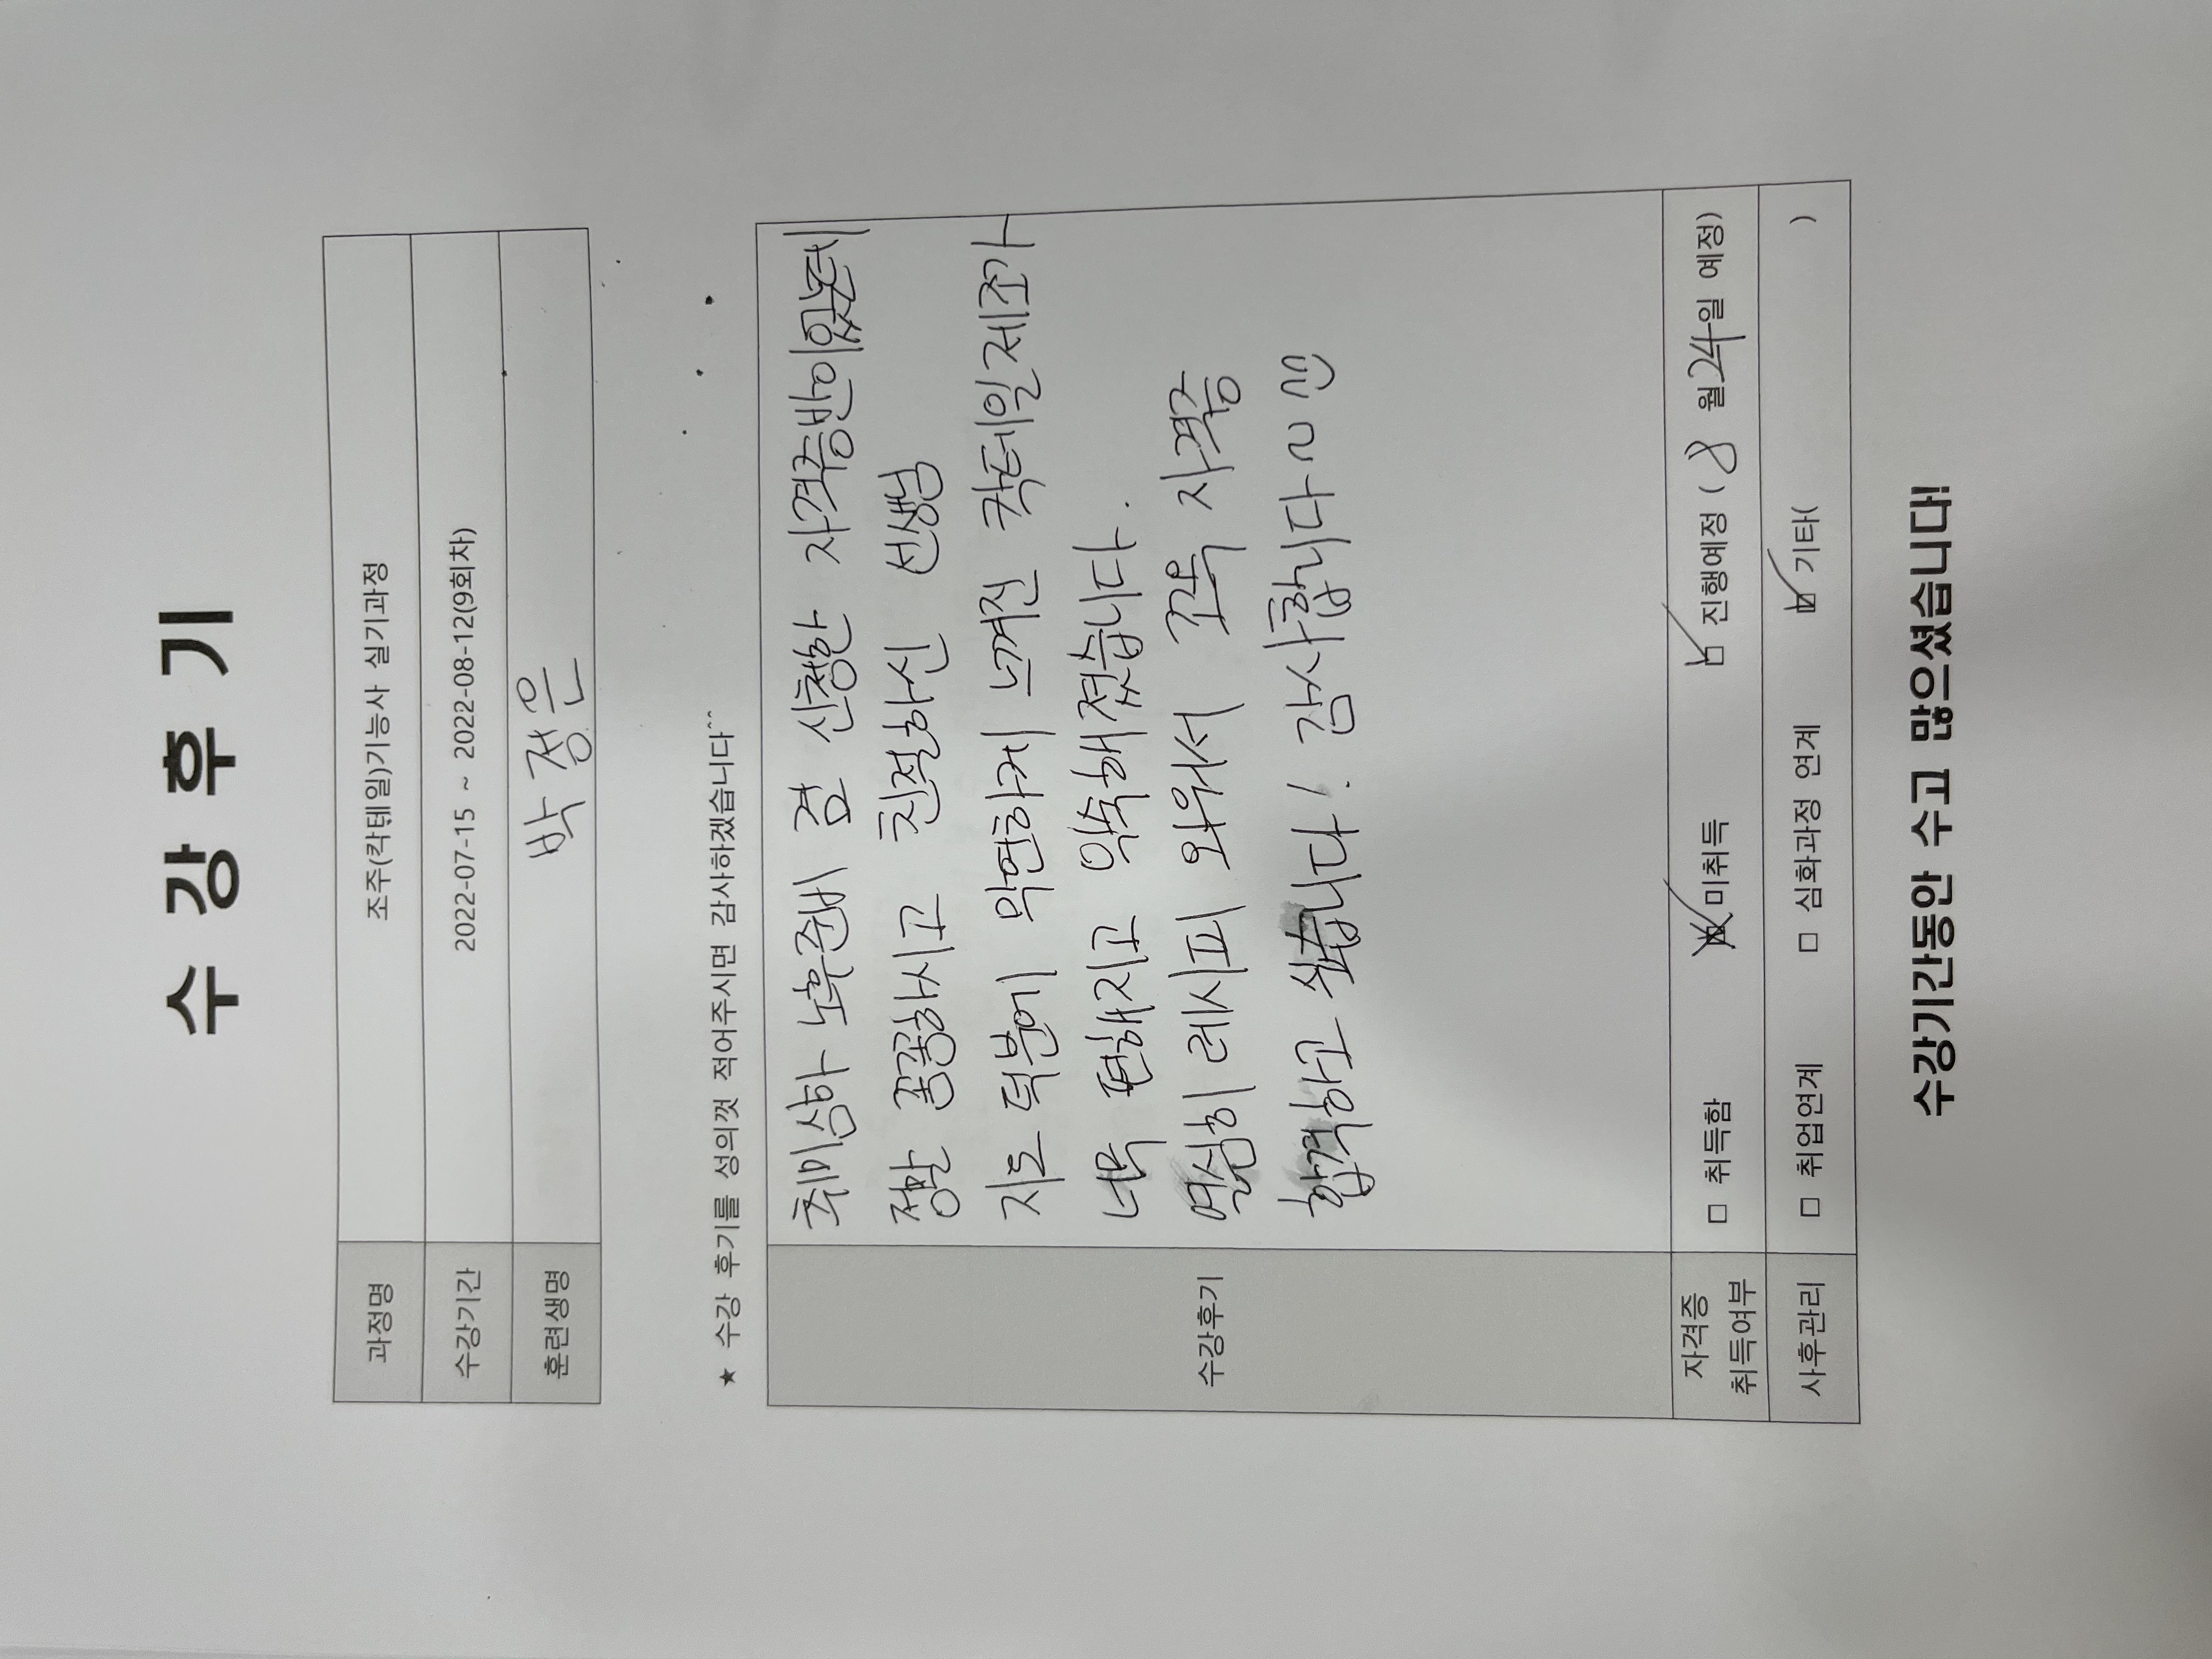 수 강 후 기
과정명 조주(칵테일)기능사 실기과정
수강기간 2022-07-15 ~ 2022-08-12(9회차)
훈련생명 박정은
★ 수강 후기를 성의껏 적어주시면 감사하겠습니다^^
수강후기
취미삼아 노후준비 겸 신청한 자격증반이었는데
정말 꼼꼼하시고 친절하신 선생님
지도 덕분에 막연하게 느껴진 칵테일제조가
너무 편해지고 익숙해졌습니다.
열심히 레시피 외워서 꼬옥 자격증
합격하고 싶습니다! 감사합니다~
자격증 취득여부 □ 취득함 □ 미취득 □ 진행예정 ( 8 월 24일 예정)
사후관리 □ 취업연계 □ 심화과정 연계 □ 기타( )
수강기간동안 수고 많으셨습니다!